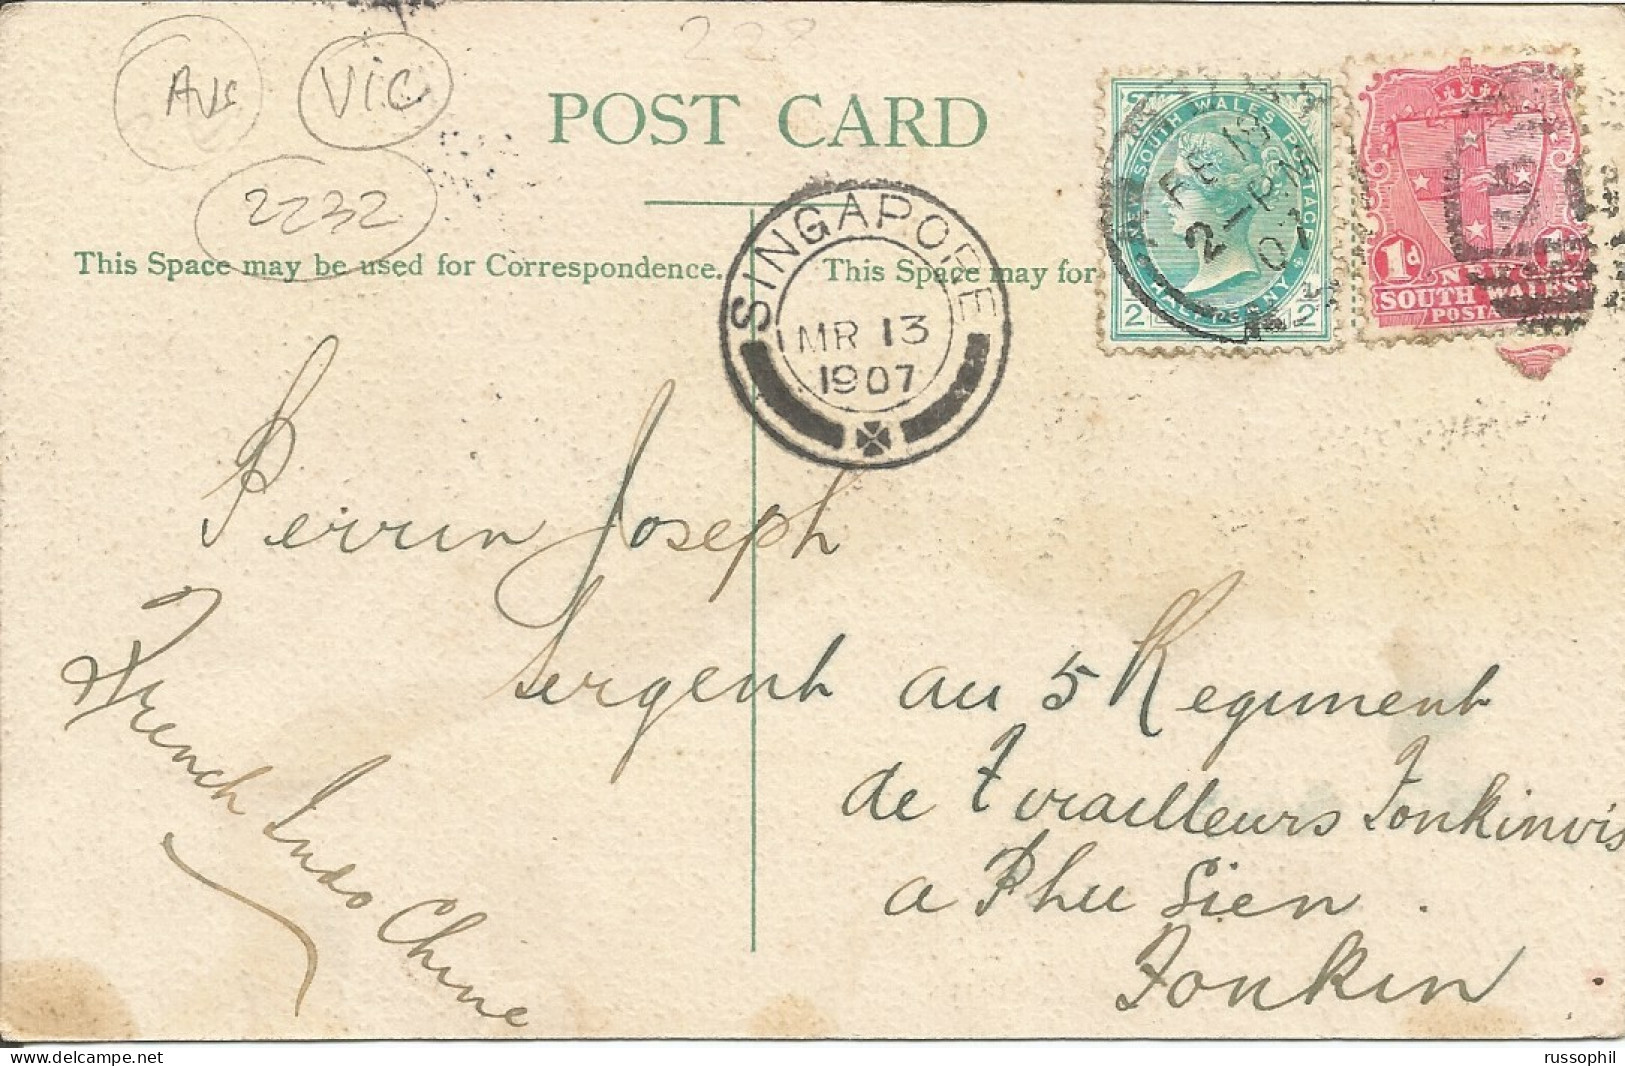 Aus
VIC
222
2232
POST CARD
This Space may be used for Correspondence.
This Space may for
SINGAPORE
MR 13
1907
NEW SOUTH WALES POSTAGE
HALFPENNY
1/2
1/2
FE 13
2-PM
07
1d
N.S.W.
SOUTH WALES
POSTA
Perrin Joseph
Sergent au 5 Regiment
de Tirailleurs Tonkinois
a Phu Lien.
Tonkin
French Indo Chine
russophil